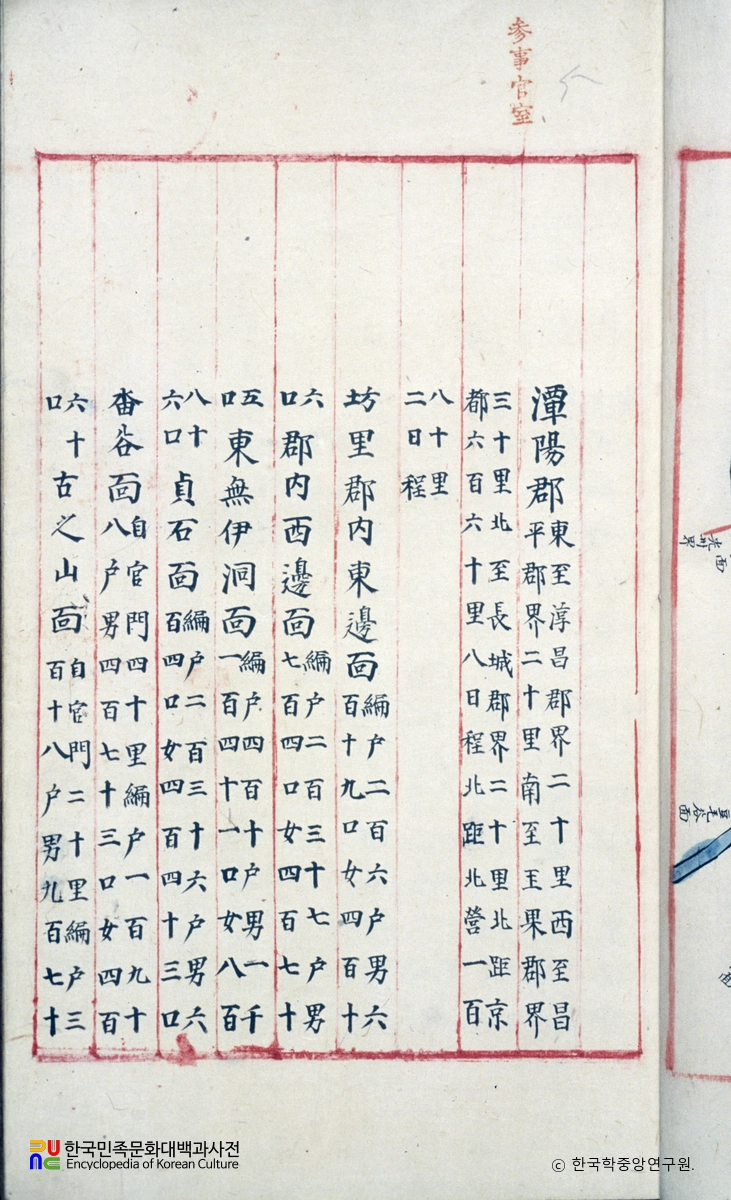 参事官室
潭陽郡
東至淳昌郡界二十里西至昌
平郡界二十里南至玉果郡界
三十里北至長城郡界二十里北距京
都六百六十里八日程北距北營一百
八十里
二日程
坊里郡內東邊面
編戶二百六戶男六
百十九口女四百十
六
口
郡內西邊面
編戶二百三十七戶男
七百四口女四百七十
五
口
東無伊洞面
編戶四百十戶男一千
一百四十一口女八百
八十
六口
貞石面
編戶二百三十六戶男六
百四口女四百四十三口
畓谷面
自官門四十里編戶一百九十
八戶男四百七十三口女四百
六十
口
古之山面
自官門二十里編戶三
百十八戶男九百七十
한국민족문화대백과사전
Encyclopedia of Korean Culture
© 한국학중앙연구원.